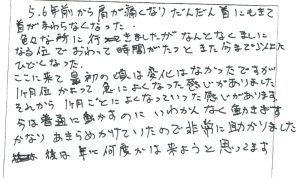 5.6年前から肩が痛くなりだんだん首にもきて
首がまわらなくなった.
色々な所に行ってきましたがなんとなくましに
なる位でおわって時間がたつとまた今までより
ひどくなった.
ここに来て最初の頃は変化はなかったですが
1ヶ月位かよって急によくなった感じがありました
それから1ヶ月ごとによくなっていった感じがあります.
今は普通に動かすのにいわかんなく動きます
かなりあきらめかけていたので非常に助かりました
後は年に何度かは来ようと思ってます